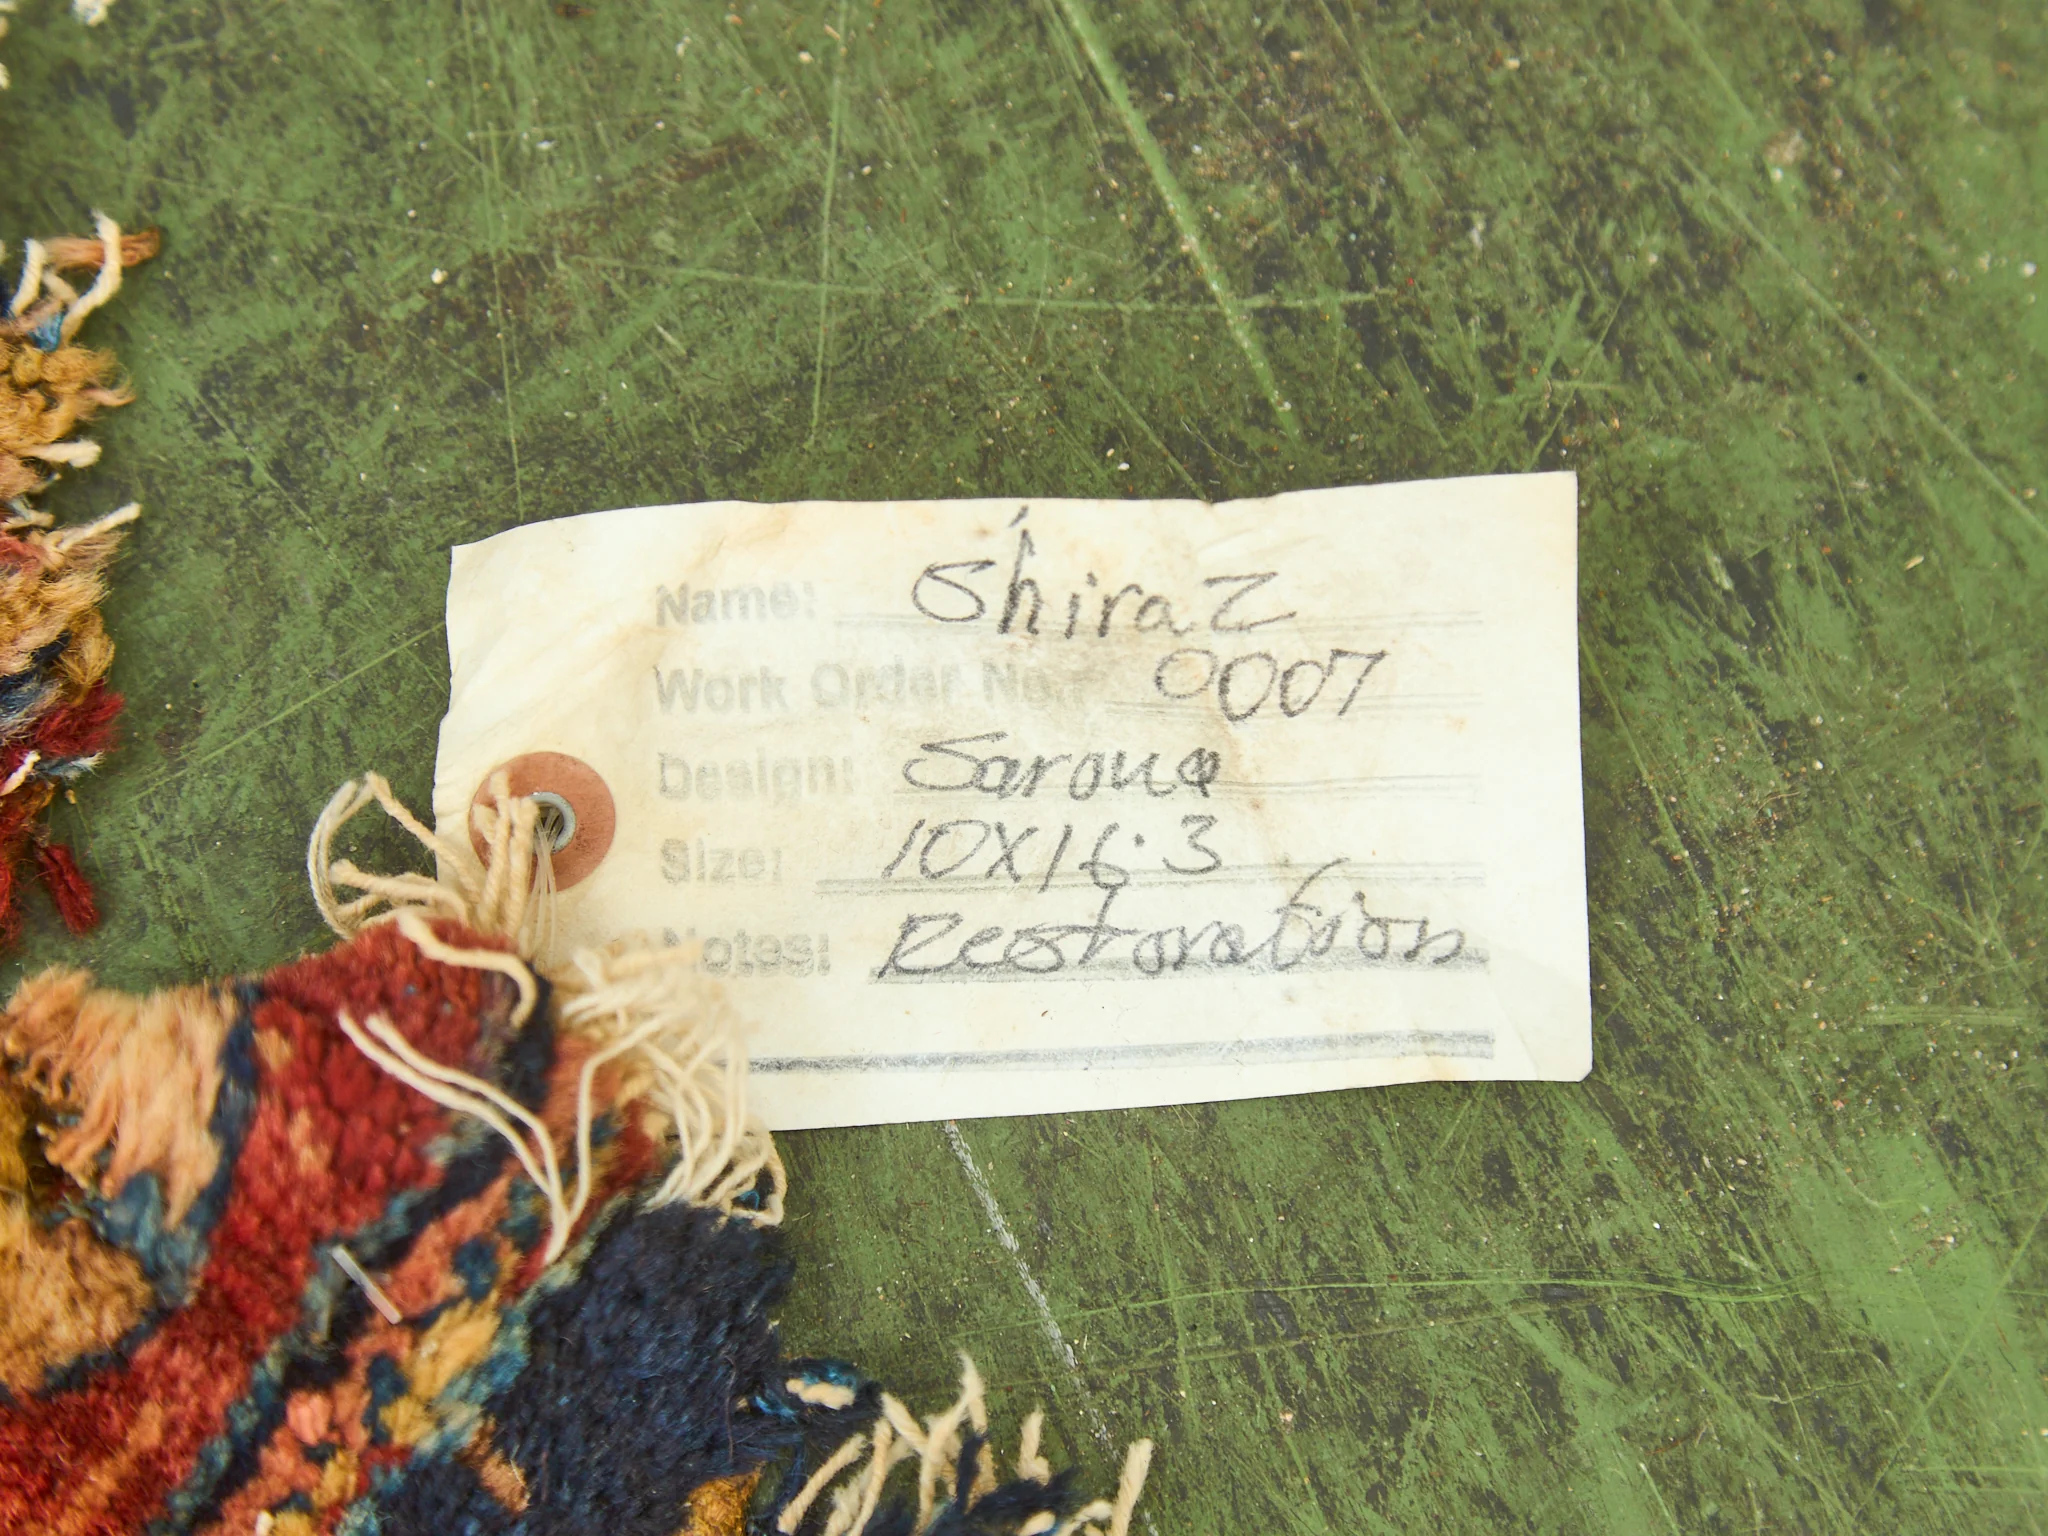 Name: Shiraz
Work Order No.: 0007
Design: Sarouq
Size: 10X16.3
Notes: Restoration